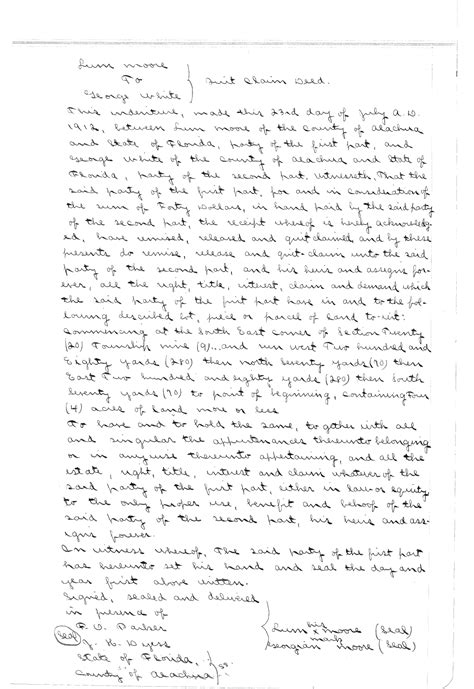 Lum Moore
To
George White
Quit Claim Deed.
This indenture, made this 23rd day of July A.D.
1912, between Lum Moore of the County of Alachua
and State of Florida, party of the first part, and
George White of the County of Alachua and State of
Florida, party of the second part, witnesseth, That the
said party of the first part, for and in consideration of
the sum of Forty Dollars, in hand paid by the said party
of the second part, the receipt whereof is hereby acknowledg-
ed, have remised, released and quit claimed, and by these
presents do remise, release and quit-claim unto the said
party of the second part, and his heirs and assigns for-
ever, all the right, title, interest, claim and demand which
the said party of the first part have in and to the fol-
lowing described lot, piece or parcel of land to-wit:
Commencing at the South East corner of Section Twenty
(20) Township nine (9)... and run west Two hundred and
Eighty yards (280) then north seventy yards (70) then
East Two hundred and eighty yards (280) then South
seventy yards (70) to point of beginning, containing Four
(4) acres of land more or less
To have and to hold the same, to gather with all
and singular the appurtenances thereunto belonging
or in anywise thereunto appertaining, and all the
estate, right, title, interest and claim whatever of the
said party of the first part, either in law or equity
to the only proper use, benefit and behoof of the
said party of the second part, his heirs and ass-
igns forever.
In witness whereof, The said party of the first part
has hereunto set his hand and seal the day and
year first above written.
Signed, sealed and delivered
in presence of
his
Lum x Moore (Seal)
mark
Georgian Moore (Seal)
Parker
(Seal) J. H.
State of Florida,
County of Alachua } SS.